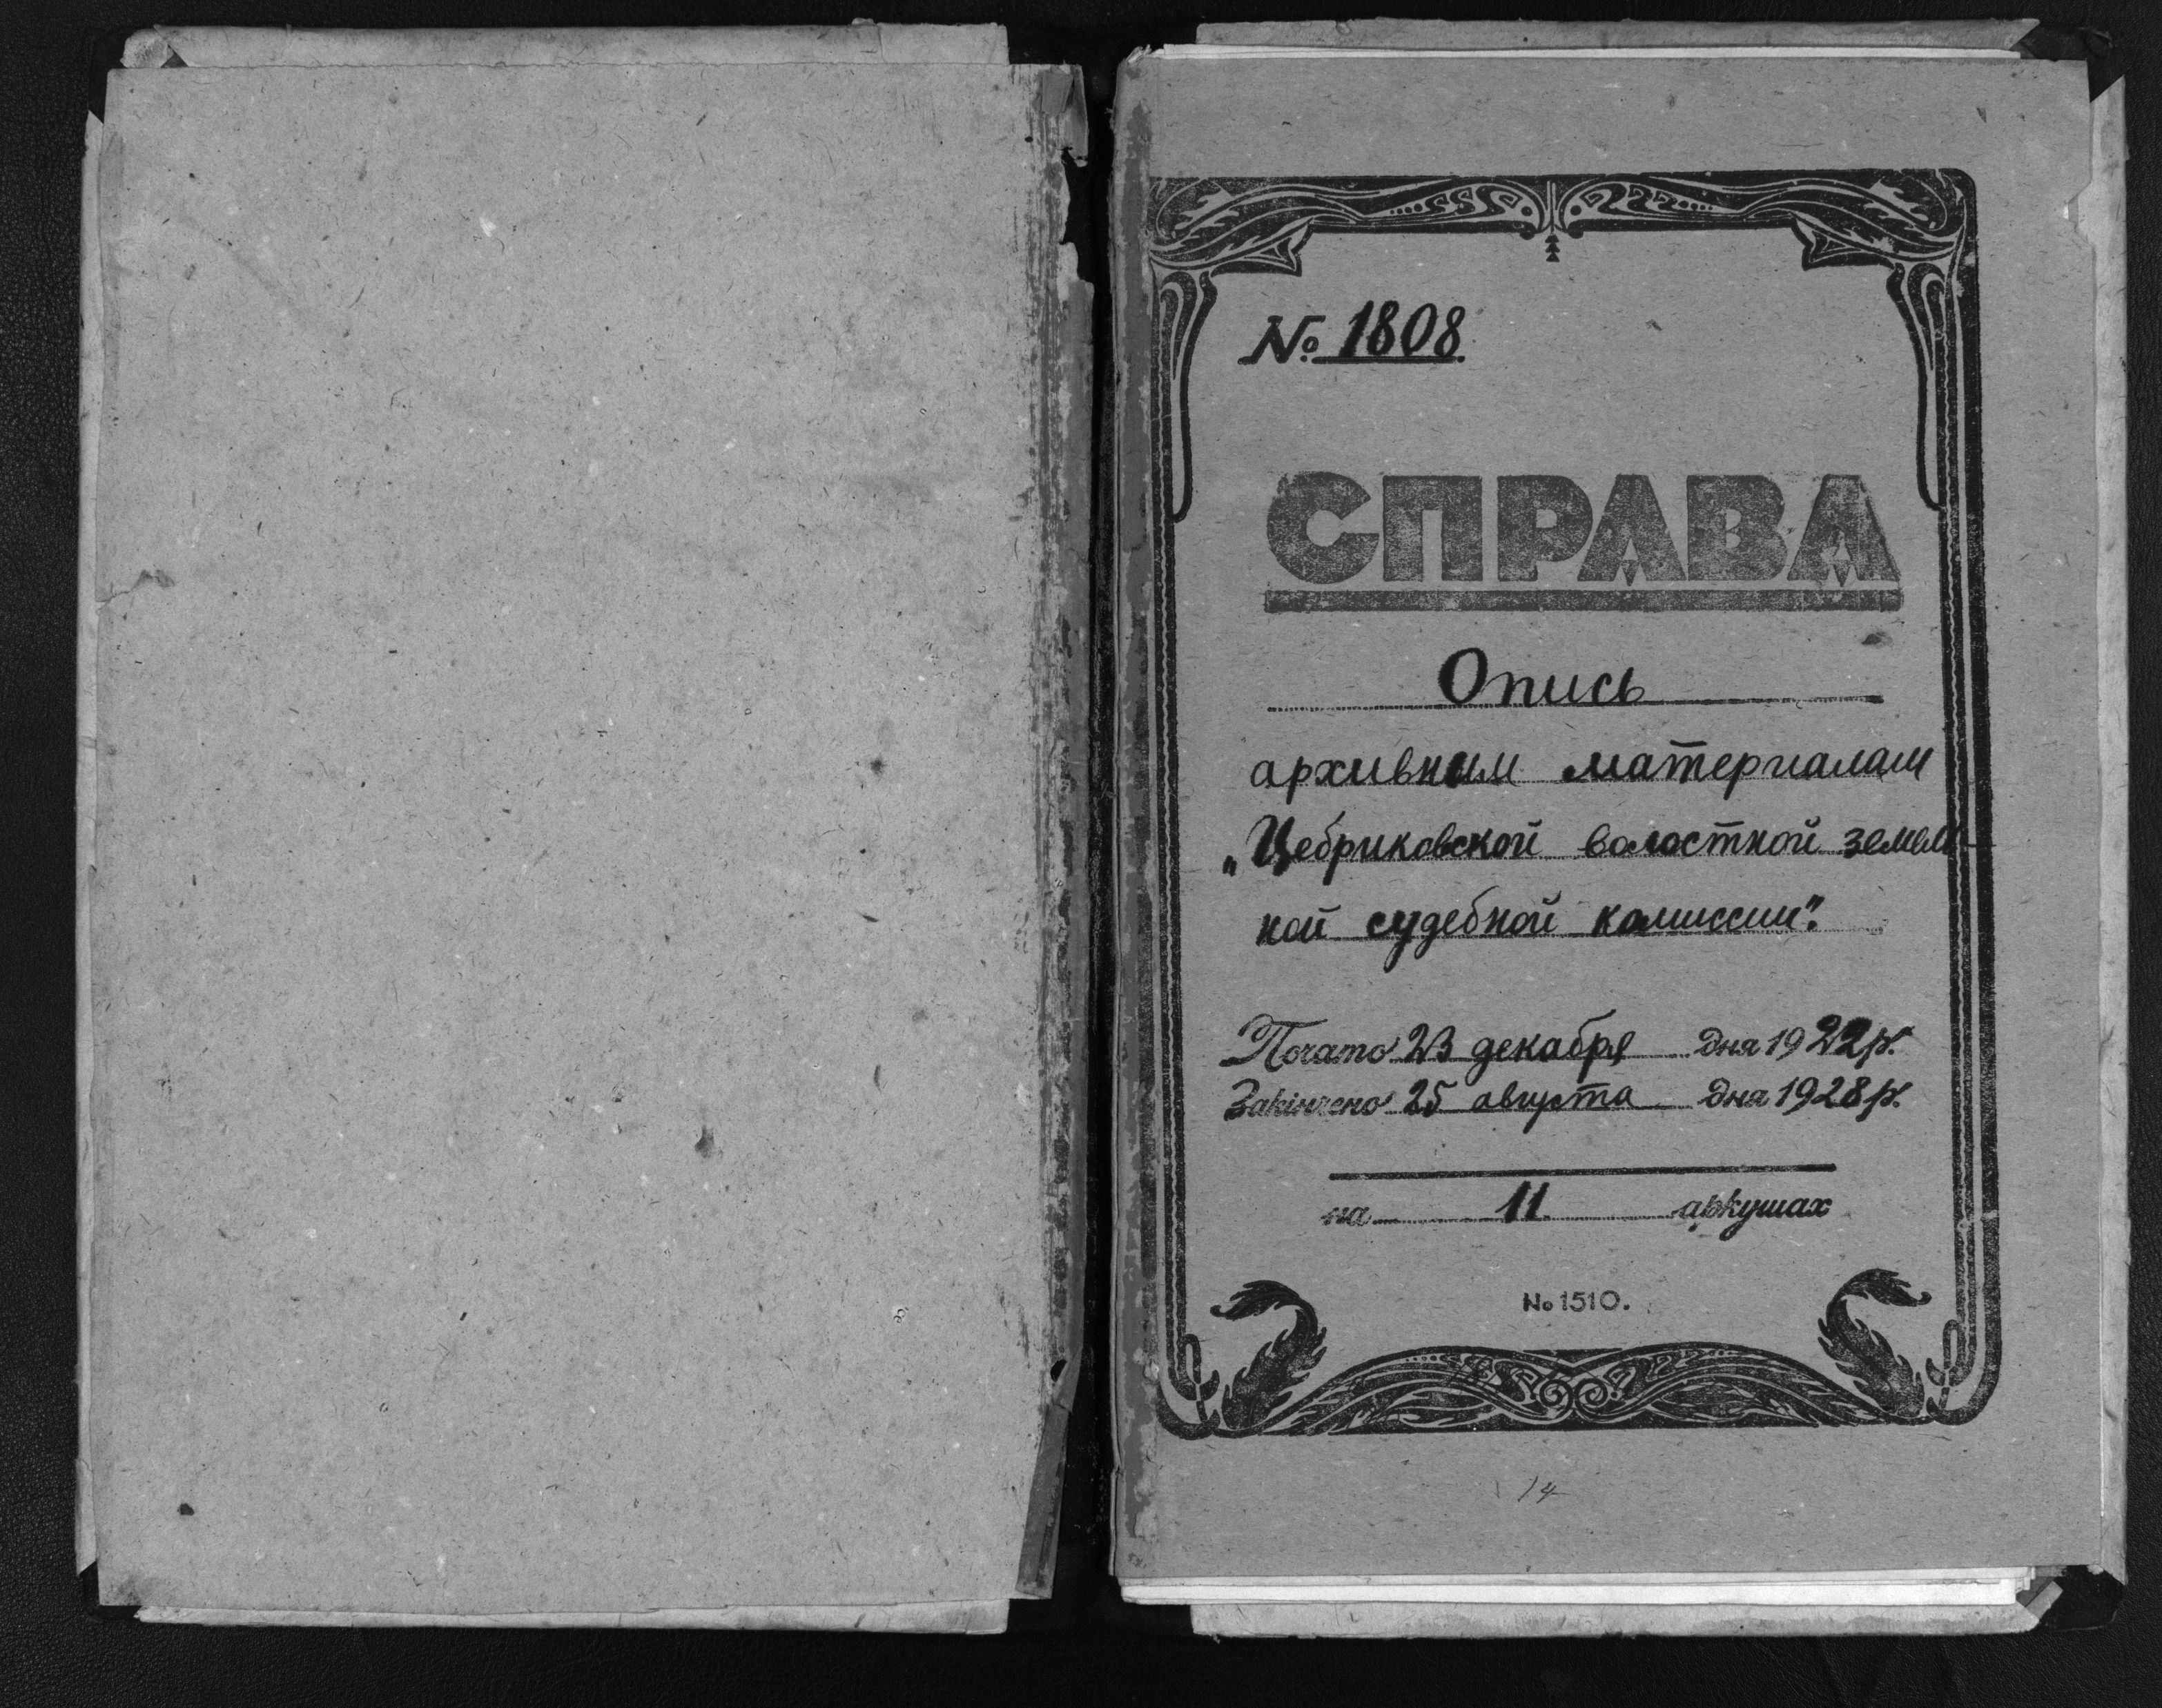 № 1808
СПРАВА
Опись
архивным материалам
„Цебриковской волостной земель-
ной судебной комиссии".
Почато 23 декабря дня 1922 р.
Закінчено 25 августа дня 1928 р.
на 11 аркушах
№ 1510.
14